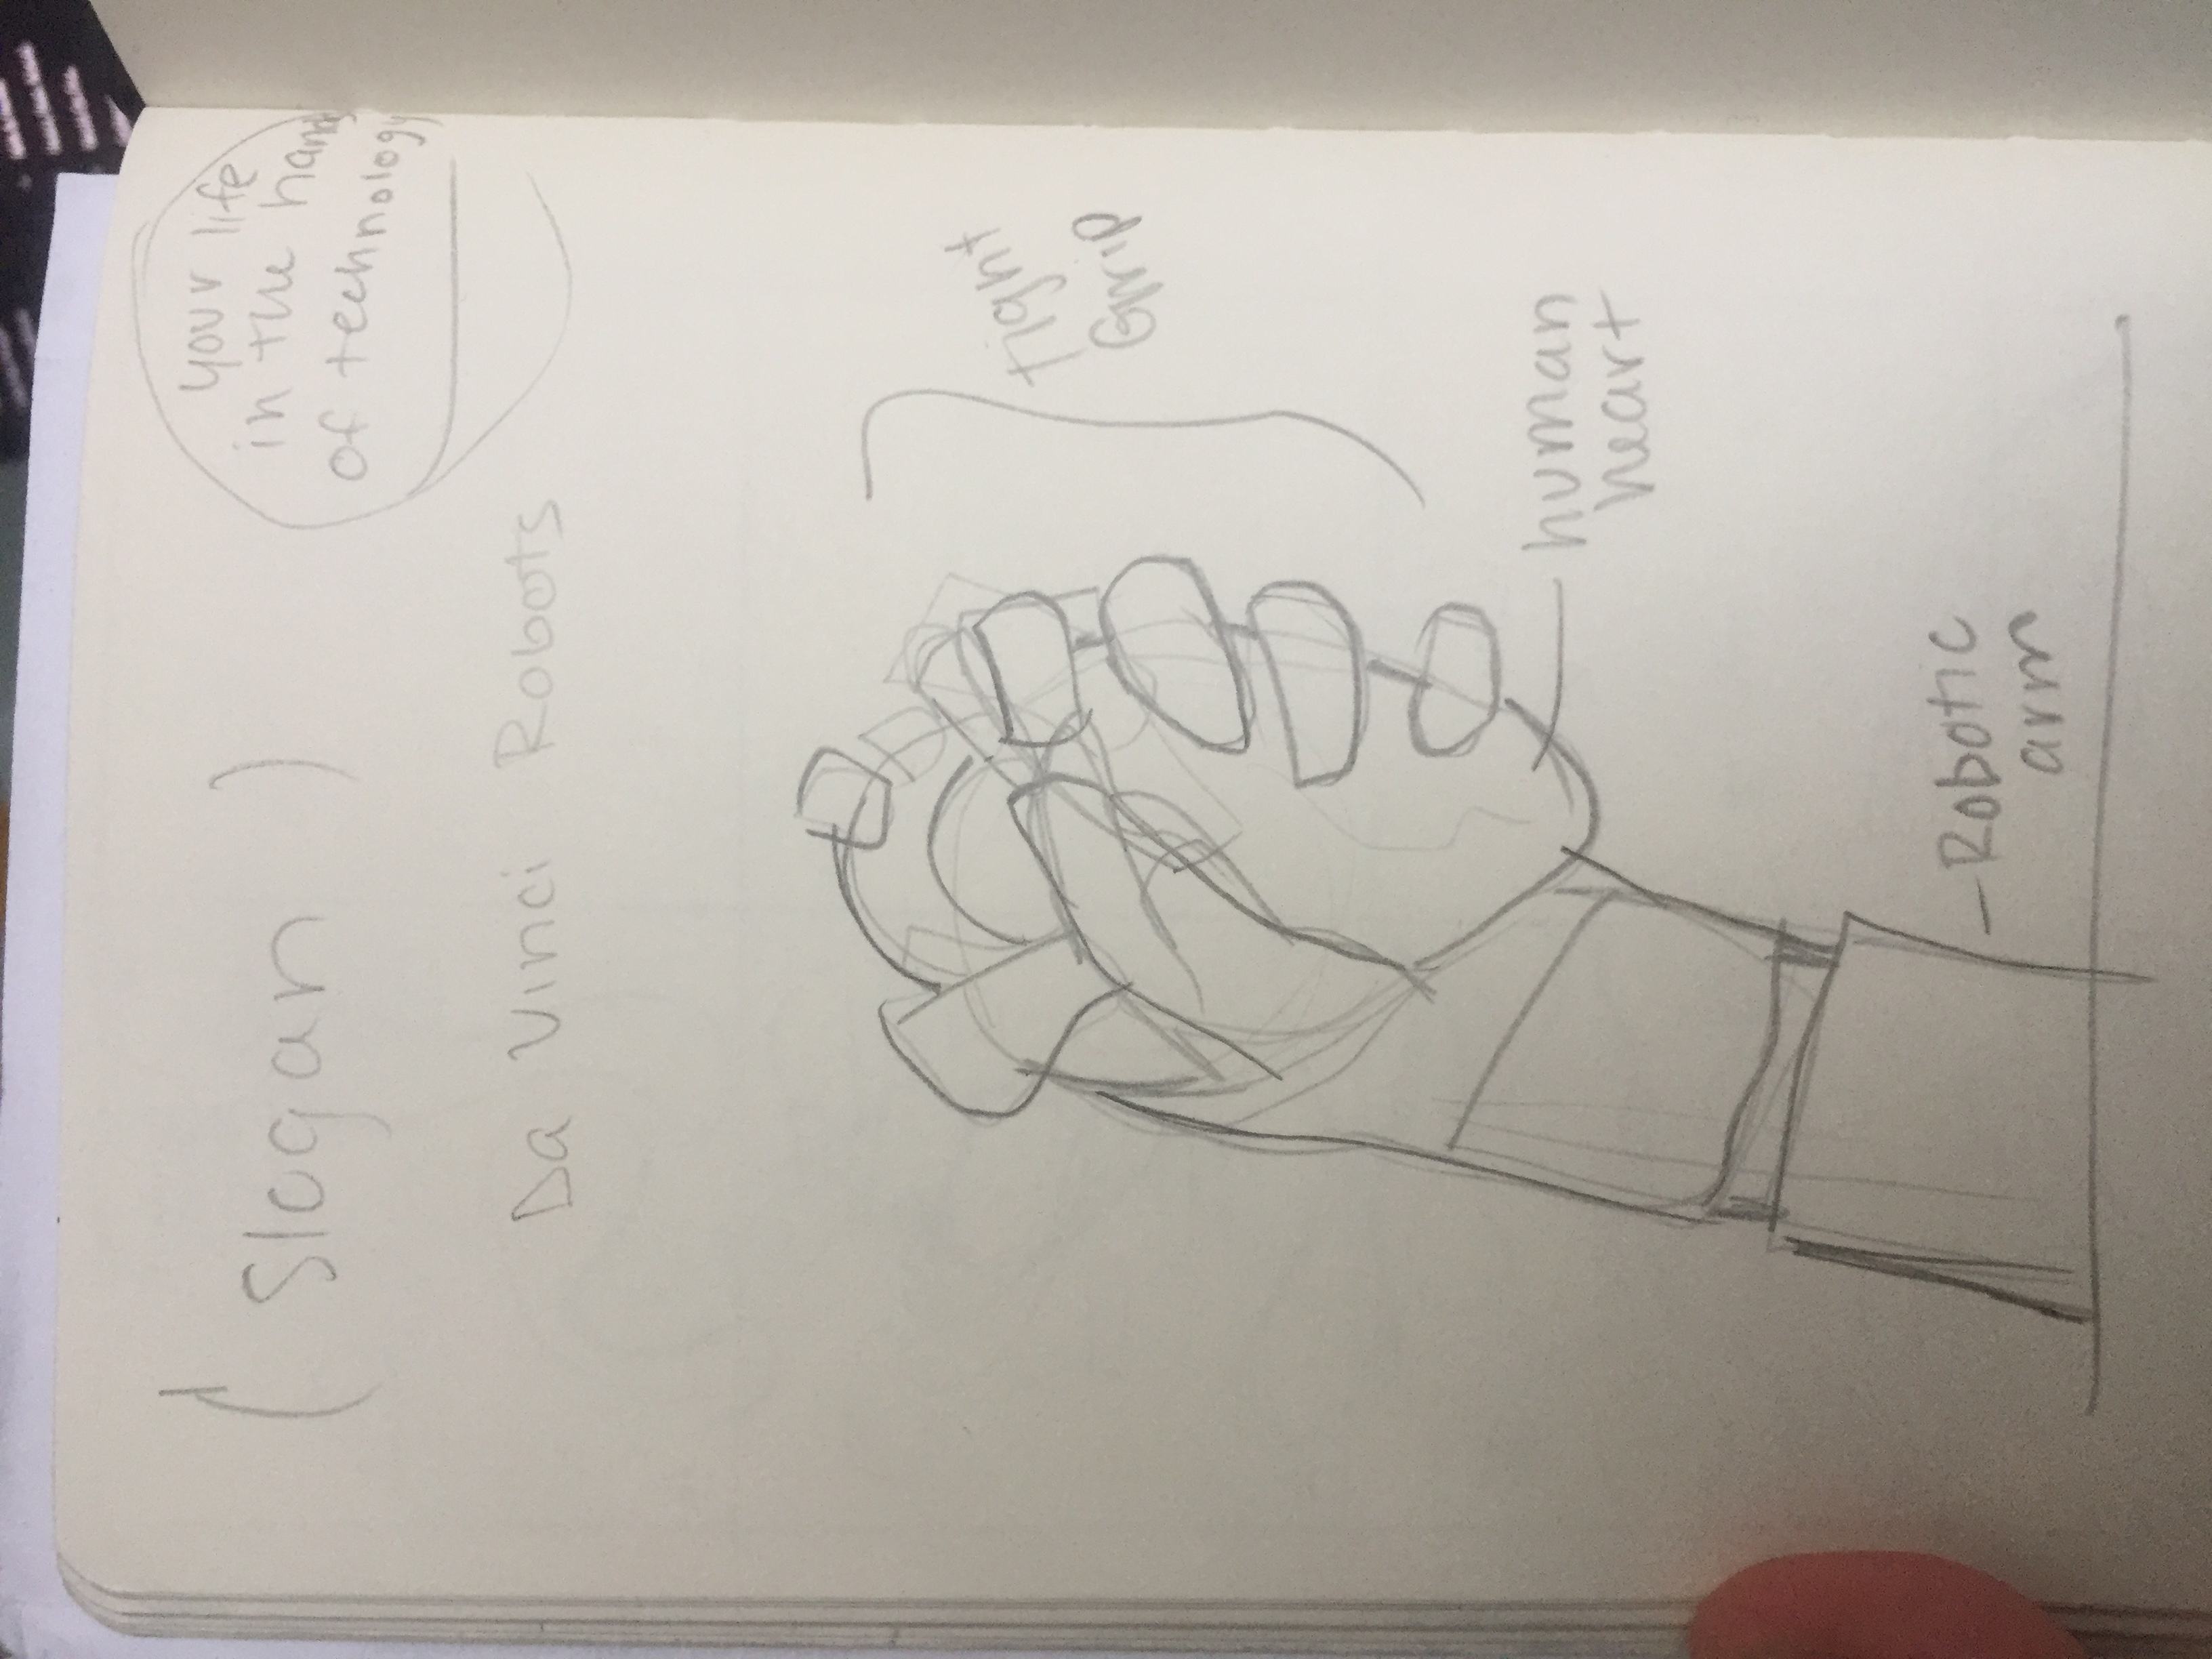 ( Slogan )
your life
in the hands
of technology
Da Vinci Robots
tight
Grip
human
heart
Robotic
arm